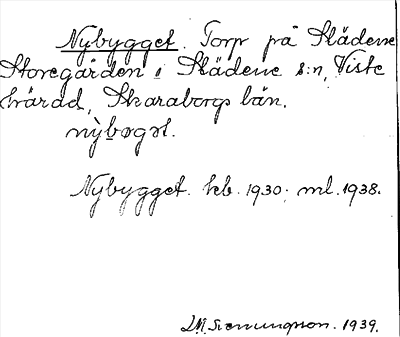 Nybygget. Torp på Slädene
Storegården i Slädene s:n, Viste
härad, Skaraborgs län.
nỳbøgət.
Nybygget. kb. 1930; ml. 1938.
1939.